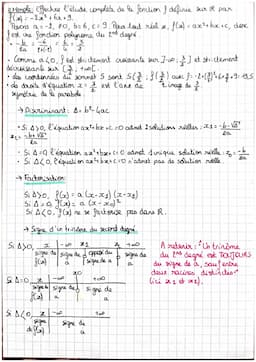 Exemple: Effectuer l'étude complète de la fonction f définie sur ℝ par
f(x) = -2x² + 6x + 9.
Nous avons a = -2 ≠ 0, b = 6, c = 9. Pour tout réel x, f(x) = ax² + bx + c, donc
f est une fonction polynôme du 2nd degré
• -b/2a = -6/-4 = 6/4 = 3/2
• Comme a < 0, f est strictement croissante sur ]-∞; 3/2] et strictement
décroissante sur [3/2; +∞[.
• les coordonnées du sommet S sont
• la droite d'équation x = 3/2 est l'axe de
symétrie de la parabole.
→ Discriminant: Δ = b² - 4ac
• Si Δ > 0, l'équation ax² + bx + c = 0 admet 2 solutions réelles: x₁ = -b-√Δ/2a
x₂ = -b+√Δ/2a
• Si Δ = 0 l'équation ax² + bx + c = 0 admet 1 unique solution réelle: x₀ = -b/2a
• Si Δ < 0, l'équation ax² + bx + c = 0 n'admet pas de solution réelle.
→ Factorisation:
Si Δ > 0, f(x) = a(x-x₁)(x-x₂)
Si Δ = 0, f(x) = a(x-x₀)²
Si Δ < 0, f(x) ne se factorise pas dans ℝ.
→ Signe d'un trinôme du second degré.
Si Δ > 0, x -∞ x₁ x₂ +∞
signe de f(x) signe de a 0 opposé du signe de a 0 signe de a
Si Δ = 0 x -∞ x₀ +∞
signe de f(x) signe de a 0 signe de a
Si Δ < 0, x -∞ +∞
signe de f(x) signe de a
A retenir: "Un trinôme
du 2nd degré est TOUJOURS
du signe de a, sauf entre
deux racines distinctes"
(ici x₁ et x₂).